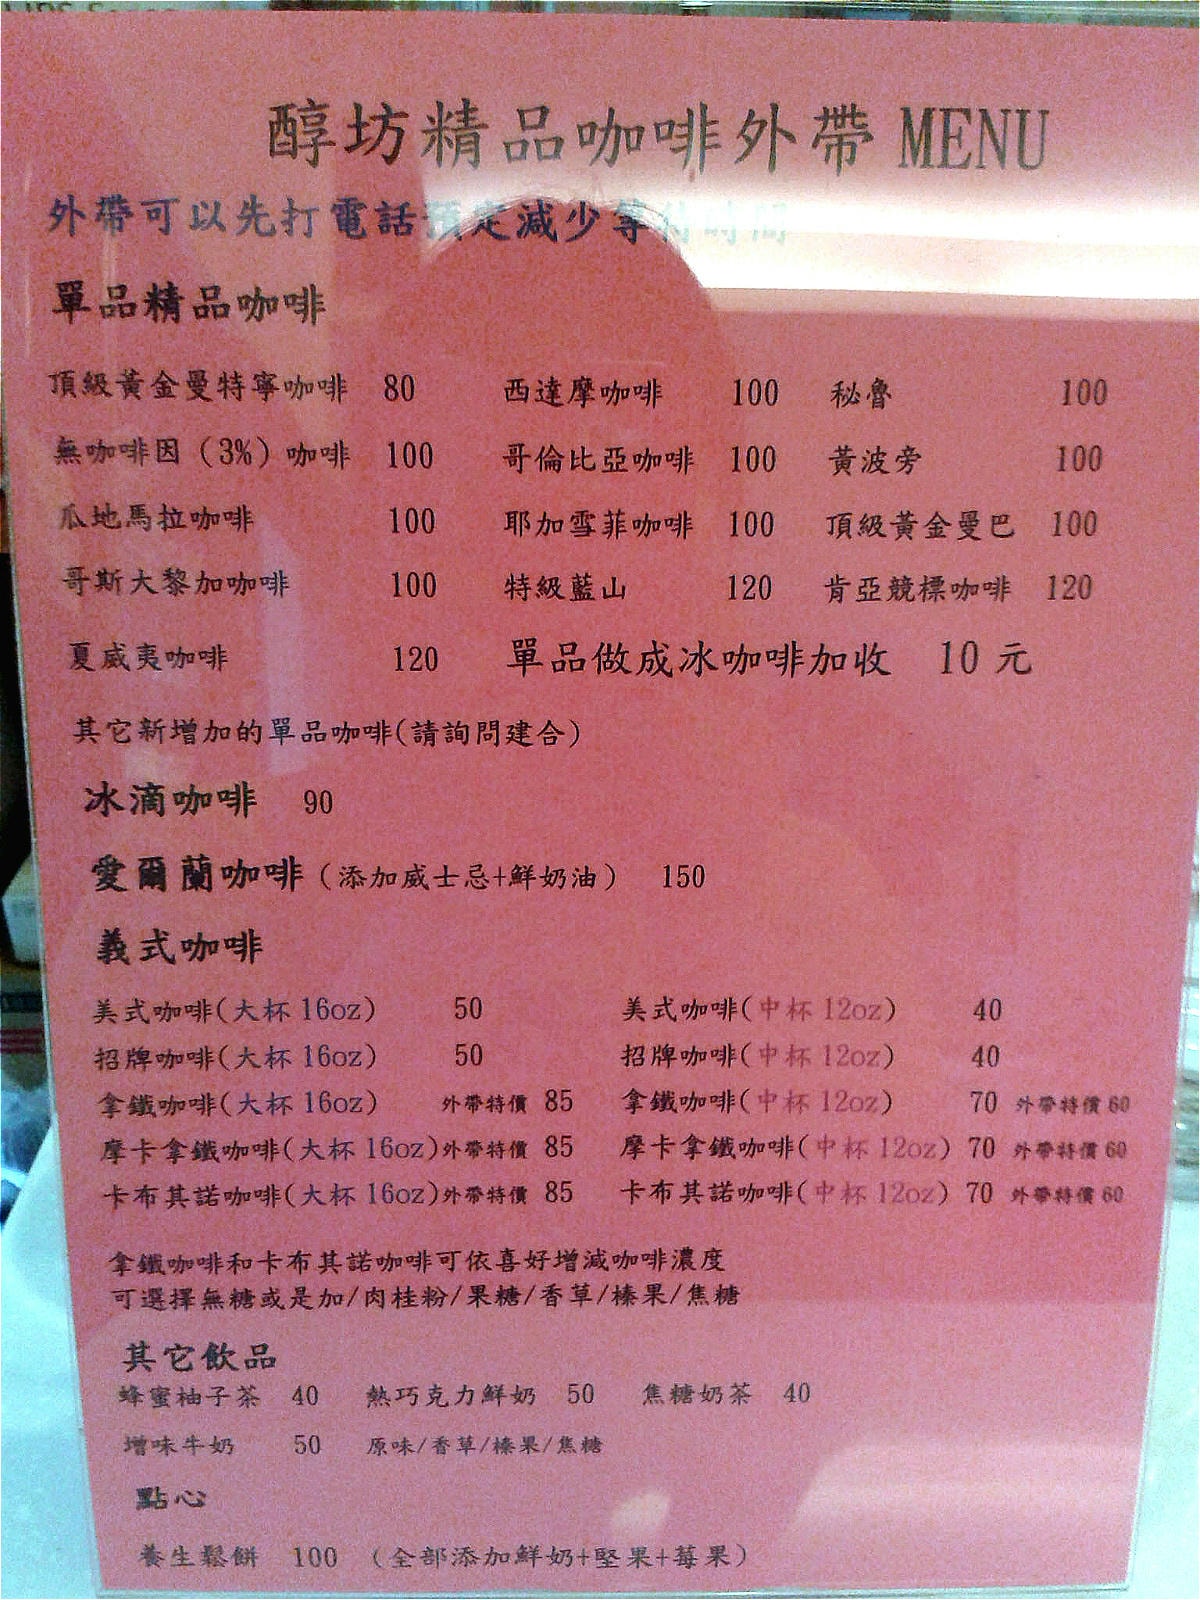 醇坊精品咖啡外帶 MENU
外帶可以先打電話預定減少等待時間
單品精品咖啡
頂級黃金曼特寧咖啡 80 西達摩咖啡 100 秘魯 100
無咖啡因（3%）咖啡 100 哥倫比亞咖啡 100 黃波旁 100
瓜地馬拉咖啡 100 耶加雪菲咖啡 100 頂級黃金曼巴 100
哥斯大黎加咖啡 100 特級藍山 120 肯亞競標咖啡 120
夏威夷咖啡 120 單品做成冰咖啡加收 10 元
其它新增加的單品咖啡(請詢問建合)
冰滴咖啡 90
愛爾蘭咖啡（添加威士忌+鮮奶油） 150
義式咖啡
美式咖啡(大杯 16oz) 50 美式咖啡(中杯 12oz) 40
招牌咖啡(大杯 16oz) 50 招牌咖啡(中杯 12oz) 40
拿鐵咖啡(大杯 16oz) 外帶特價 85 拿鐵咖啡(中杯 12oz) 70 外帶特價 60
摩卡拿鐵咖啡(大杯 16oz)外帶特價 85 摩卡拿鐵咖啡(中杯 12oz) 70 外帶特價 60
卡布其諾咖啡(大杯 16oz)外帶特價 85 卡布其諾咖啡(中杯 12oz) 70 外帶特價 60
拿鐵咖啡和卡布其諾咖啡可依喜好增減咖啡濃度
可選擇無糖或是加/肉桂粉/果糖/香草/榛果/焦糖
其它飲品
蜂蜜柚子茶 40 熱巧克力鮮奶 50 焦糖奶茶 40
增味牛奶 50 原味/香草/榛果/焦糖
點心
養生鬆餅 100 （全部添加鮮奶+堅果+莓果）